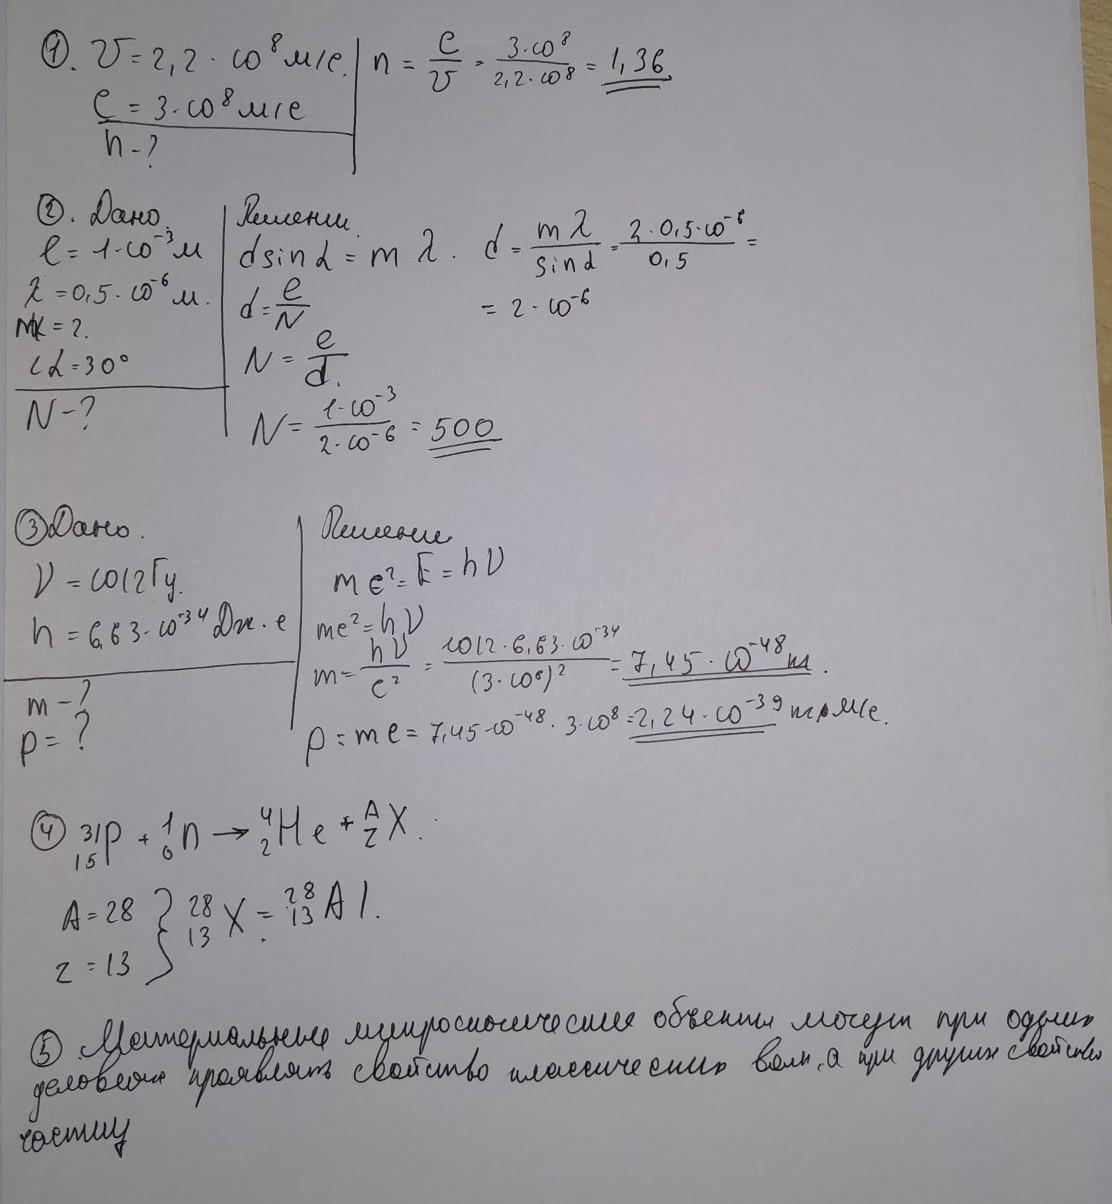 ①. υ = 2,2 · 10⁸ м/с. n = c/υ = 3·10⁸/2,2·10⁸ = 1,36
c = 3·10⁸ м/с
n - ?
②. Дано.
l = 1·10⁻³ м
λ = 0,5 · 10⁻⁶ м.
k = 2.
∠α = 30°
N - ?
Решение.
d sin α = m λ. d = mλ/sin α = 2·0,5·10⁻⁶/0,5 =
= 2·10⁻⁶
d = l/N
N = l/d.
N = 1·10⁻³/2·10⁻⁶ = 500
③ Дано.
ν = 10¹² Гц.
h = 6,63·10⁻³⁴ Дж·с
m - ?
p = ?
Решение
mc² = E = hν
mc² = hν
m = hν/c² = 10¹²·6,63·10⁻³⁴/(3·10⁸)² = 7,45·10⁻⁴⁸
p = mc = 7,45·10⁻⁴⁸ · 3·10⁸ = 2,24·10⁻³⁹ м/с.
④ ³¹₁₅P + ¹₀n → ⁴₂He + ᴬ_Z X.
A = 28 } ²⁸₁₃X = ²⁸₁₃Al.
z = 13
⑤. Материальные микроскопические объекты могут при одних
условиях проявлять свойство классических волн, а при других свойство
частиц